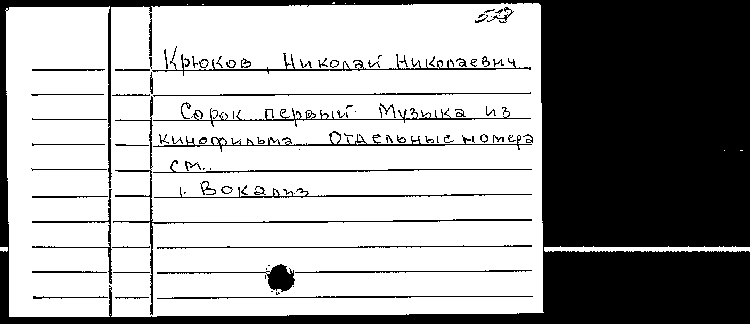 528
Крюков, Николай Николаевич
Сорок первый. Музыка из
кинофильма. Отдельные номера
см.
1. Вокализ